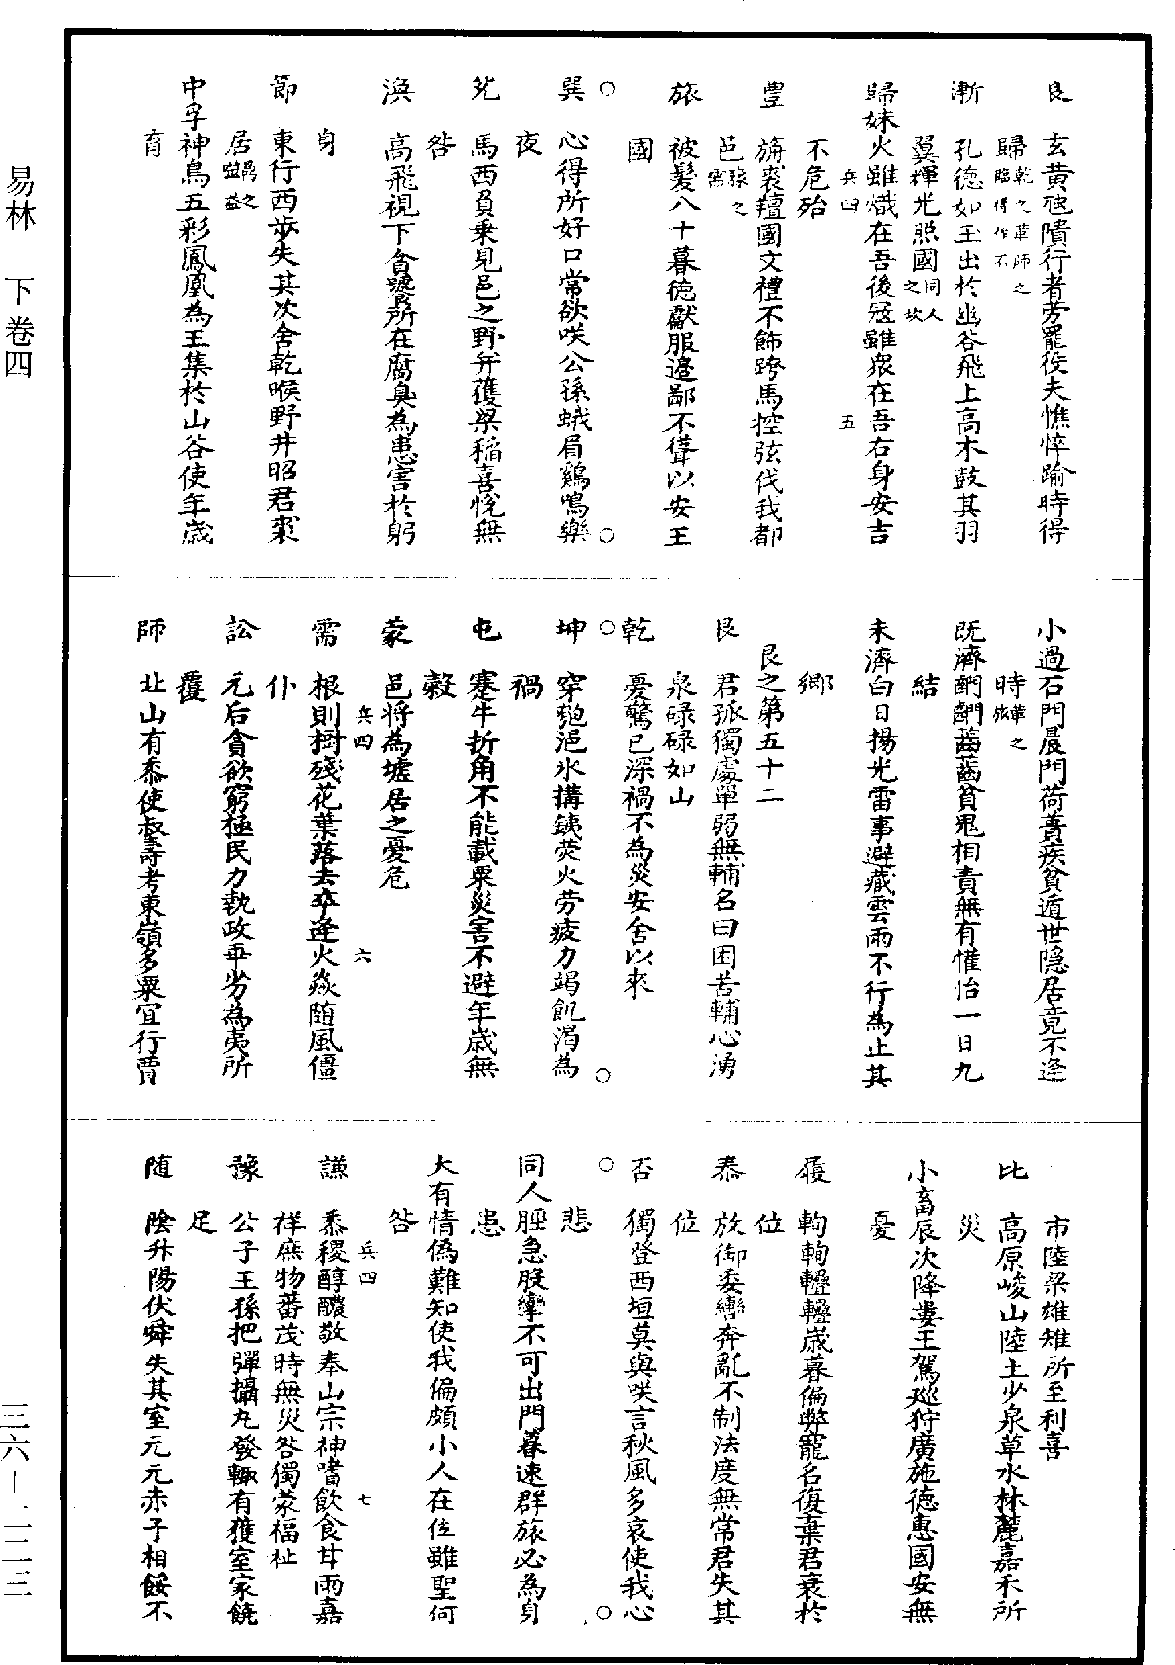 易林　下卷四
艮　玄黄虺隤行者芳罷役夫憔悴踰時得
歸乾之革師之臨得作不
漸　孔德如玉出於幽谷飛上高木鼓其羽
翼輝光照國同人之坎
歸妹火雖熾在吾後寇雖眾在吾右身安吉
兵四　五
不危殆
豐　旃裘羶國文禮不飾跨馬控弦伐我都
邑豫之需
旅　被髮八十暮徳獻服邊鄙不聳以安王
國
○巽　心得所好口常欲咲公孫蛾眉鷄鳴樂○
夜
兊　馬西負乗見邑之野并獲粱稲喜悅無
咎
渙　高飛視下貪饕所在腐臭為患害於躬
身
節　東行西歩失其次舍乾睺野井昭君喪
居需之噬嗑
中孚神鳥五彩鳳凰為王集於山谷使年歳
育
小過石門晨門荷蕢疾貧遁世隠居竟不逢
時革之旅
既濟齬齬齧齧貧鬼相責無有懽怡一日九
結
未濟白日揚光雷事避藏雲雨不行為止其
鄉
艮之第五十二
艮　君孤獨處單弱無輔名曰困苦輔心湧
泉碌碌如山
乾　憂驚已深禍不為災安舍以來
○坤　穿匏浥水搆鐵荧火劳疲力竭飢渴為○
禍
屯　蹇牛折角不能載粟災害不避年歳無
穀
蒙　邑将為墟居之憂危
兵四　六
需　根則樹殘花葉落去卒逢火焱随風僵
仆
訟　元后貪欲窮極民力執政乖劣為夷所
覆
師　北山有棗使叔壽考東嶺多粟宜行賈
市陸梁雄雉所至利喜
比　高原峻山陸土少泉草水林麓嘉禾所
災
小畜辰次降婁王駕巡狩廣施徳惠國安無
憂
履　軥軥轠轠嵗暮偏弊寵名復棄君衰於
位
泰　放御委轡奔亂不制法度無常君失其
位
○否　獨登西垣莫與咲言秋風多哀使我心○
悲
同人脛急股攣不可出門暮速群旅必為身
患
大有情偽難知使我偏頗小人在位雖聖何
咎
兵四　七
謙　黍稷醇醲敬奉山宗神嗜飲食甘雨嘉
祥庶物蕃茂時無災咎獨蒙福祉
豫　公子王孫把彈攝丸發輙有獲室家饒
足
随　隂升陽伏舜失其室元元赤子相餒不
三六—一二三